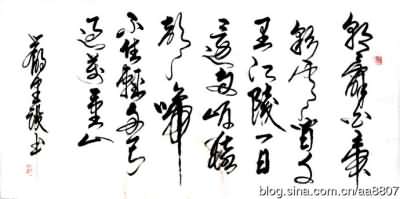 朝辭白帝
彩雲間千
里江陵一日
還兩岸猿
聲啼
不住輕舟已
過萬重山
書
blog.sina.com.cn/aa8807